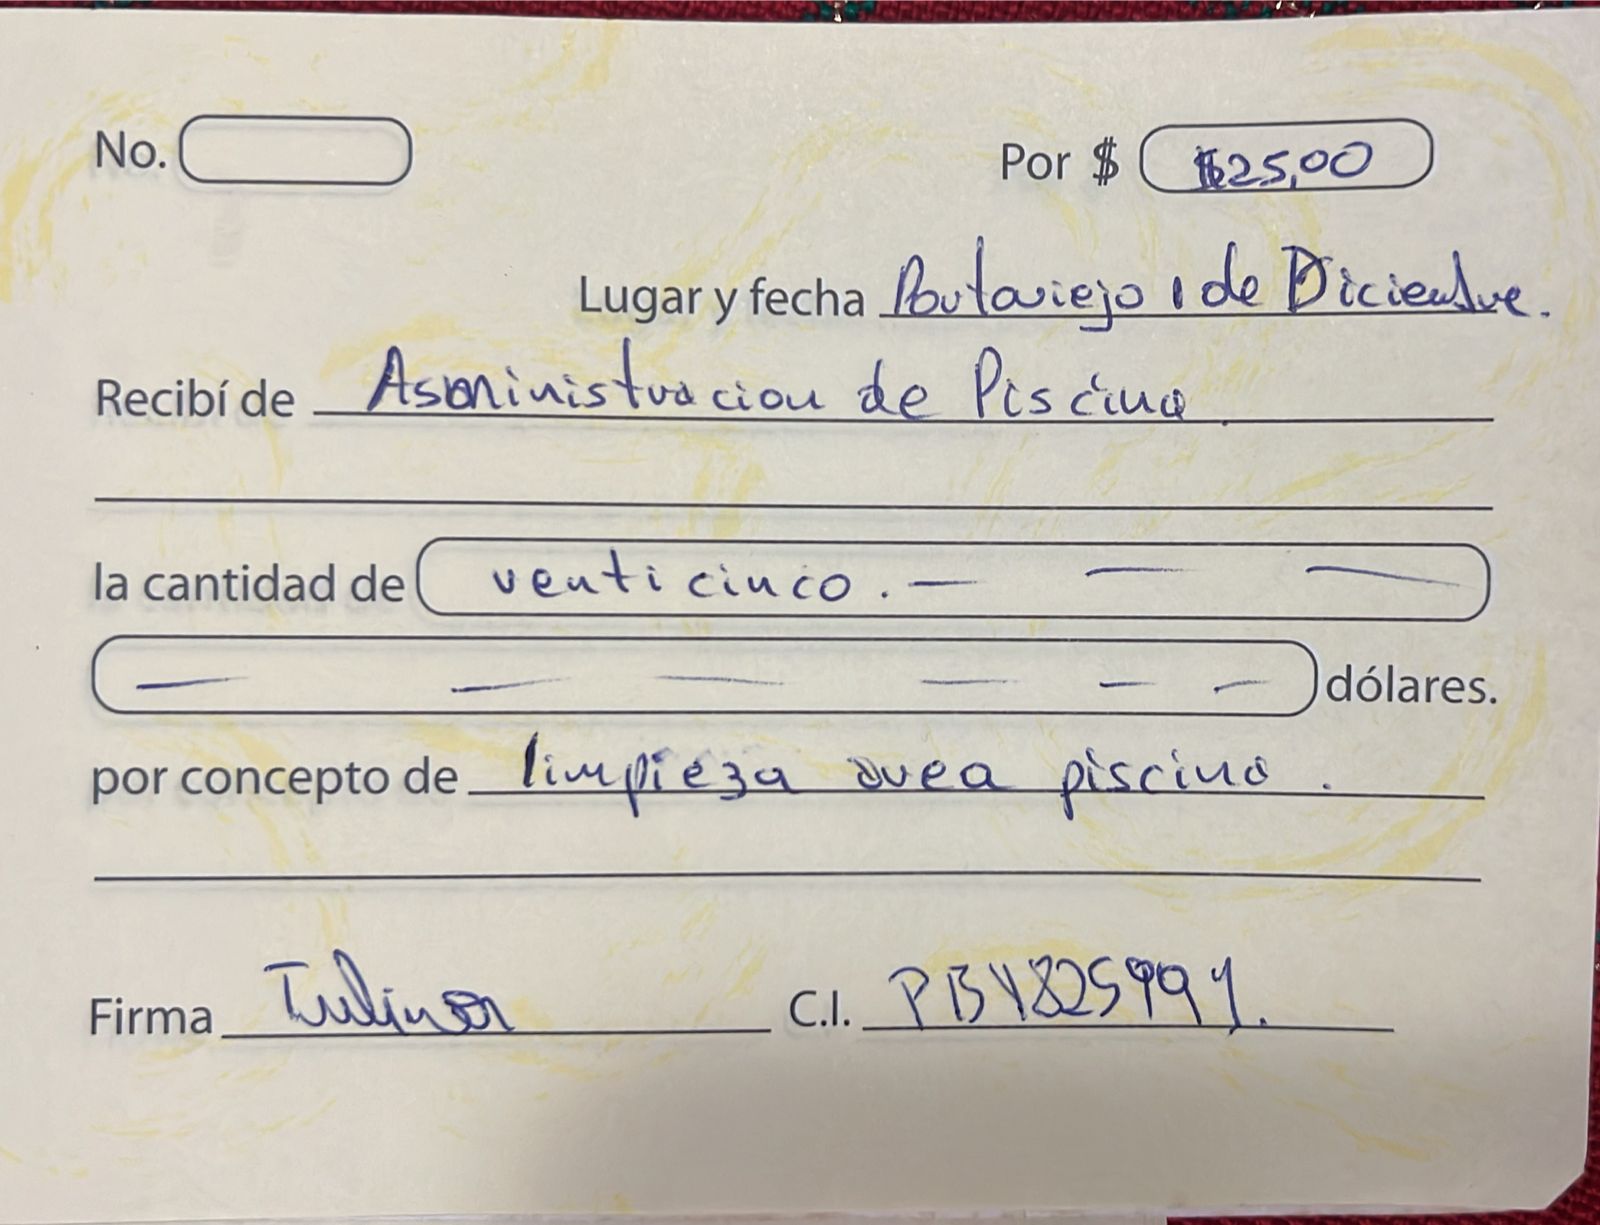 No. Por $ $25,00
Lugar y fecha Portoviejo 1 de Diciembre.
Recibí de Administracion de Piscina
la cantidad de venticinco. — — —
— — — — — — dólares.
por concepto de limpieza area piscina.
Firma C.I.